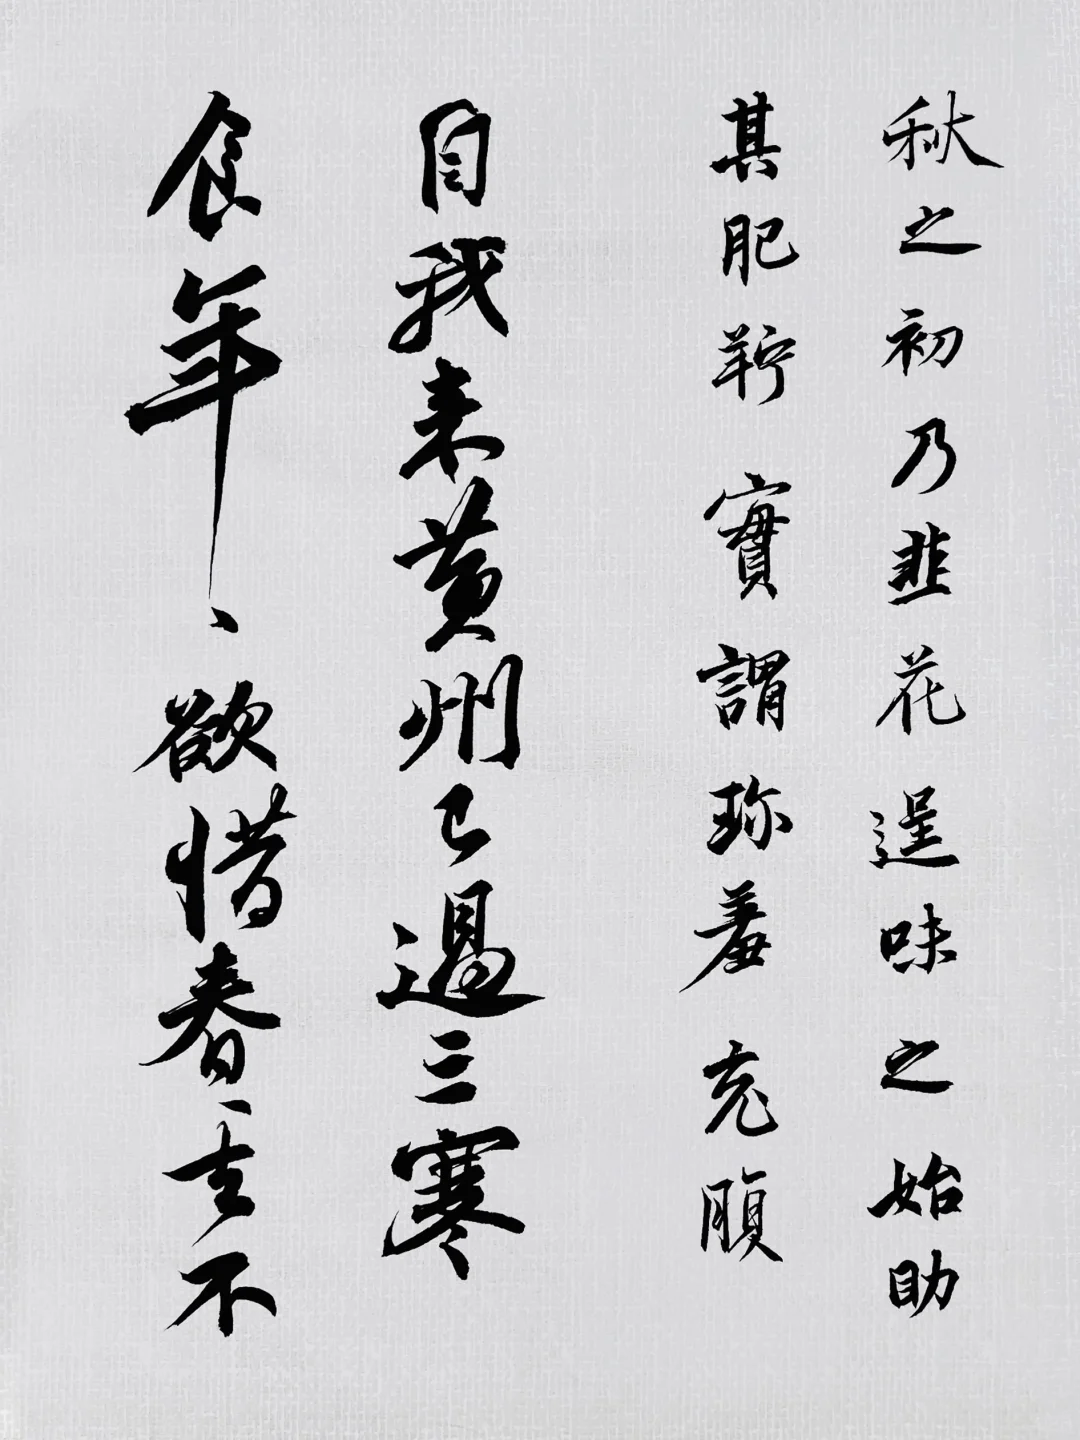 秋之初乃韭花逞味之始助
其肥羜實謂珍羞充腹
自我来黄州已過三寒
食年〻欲惜春〻去不